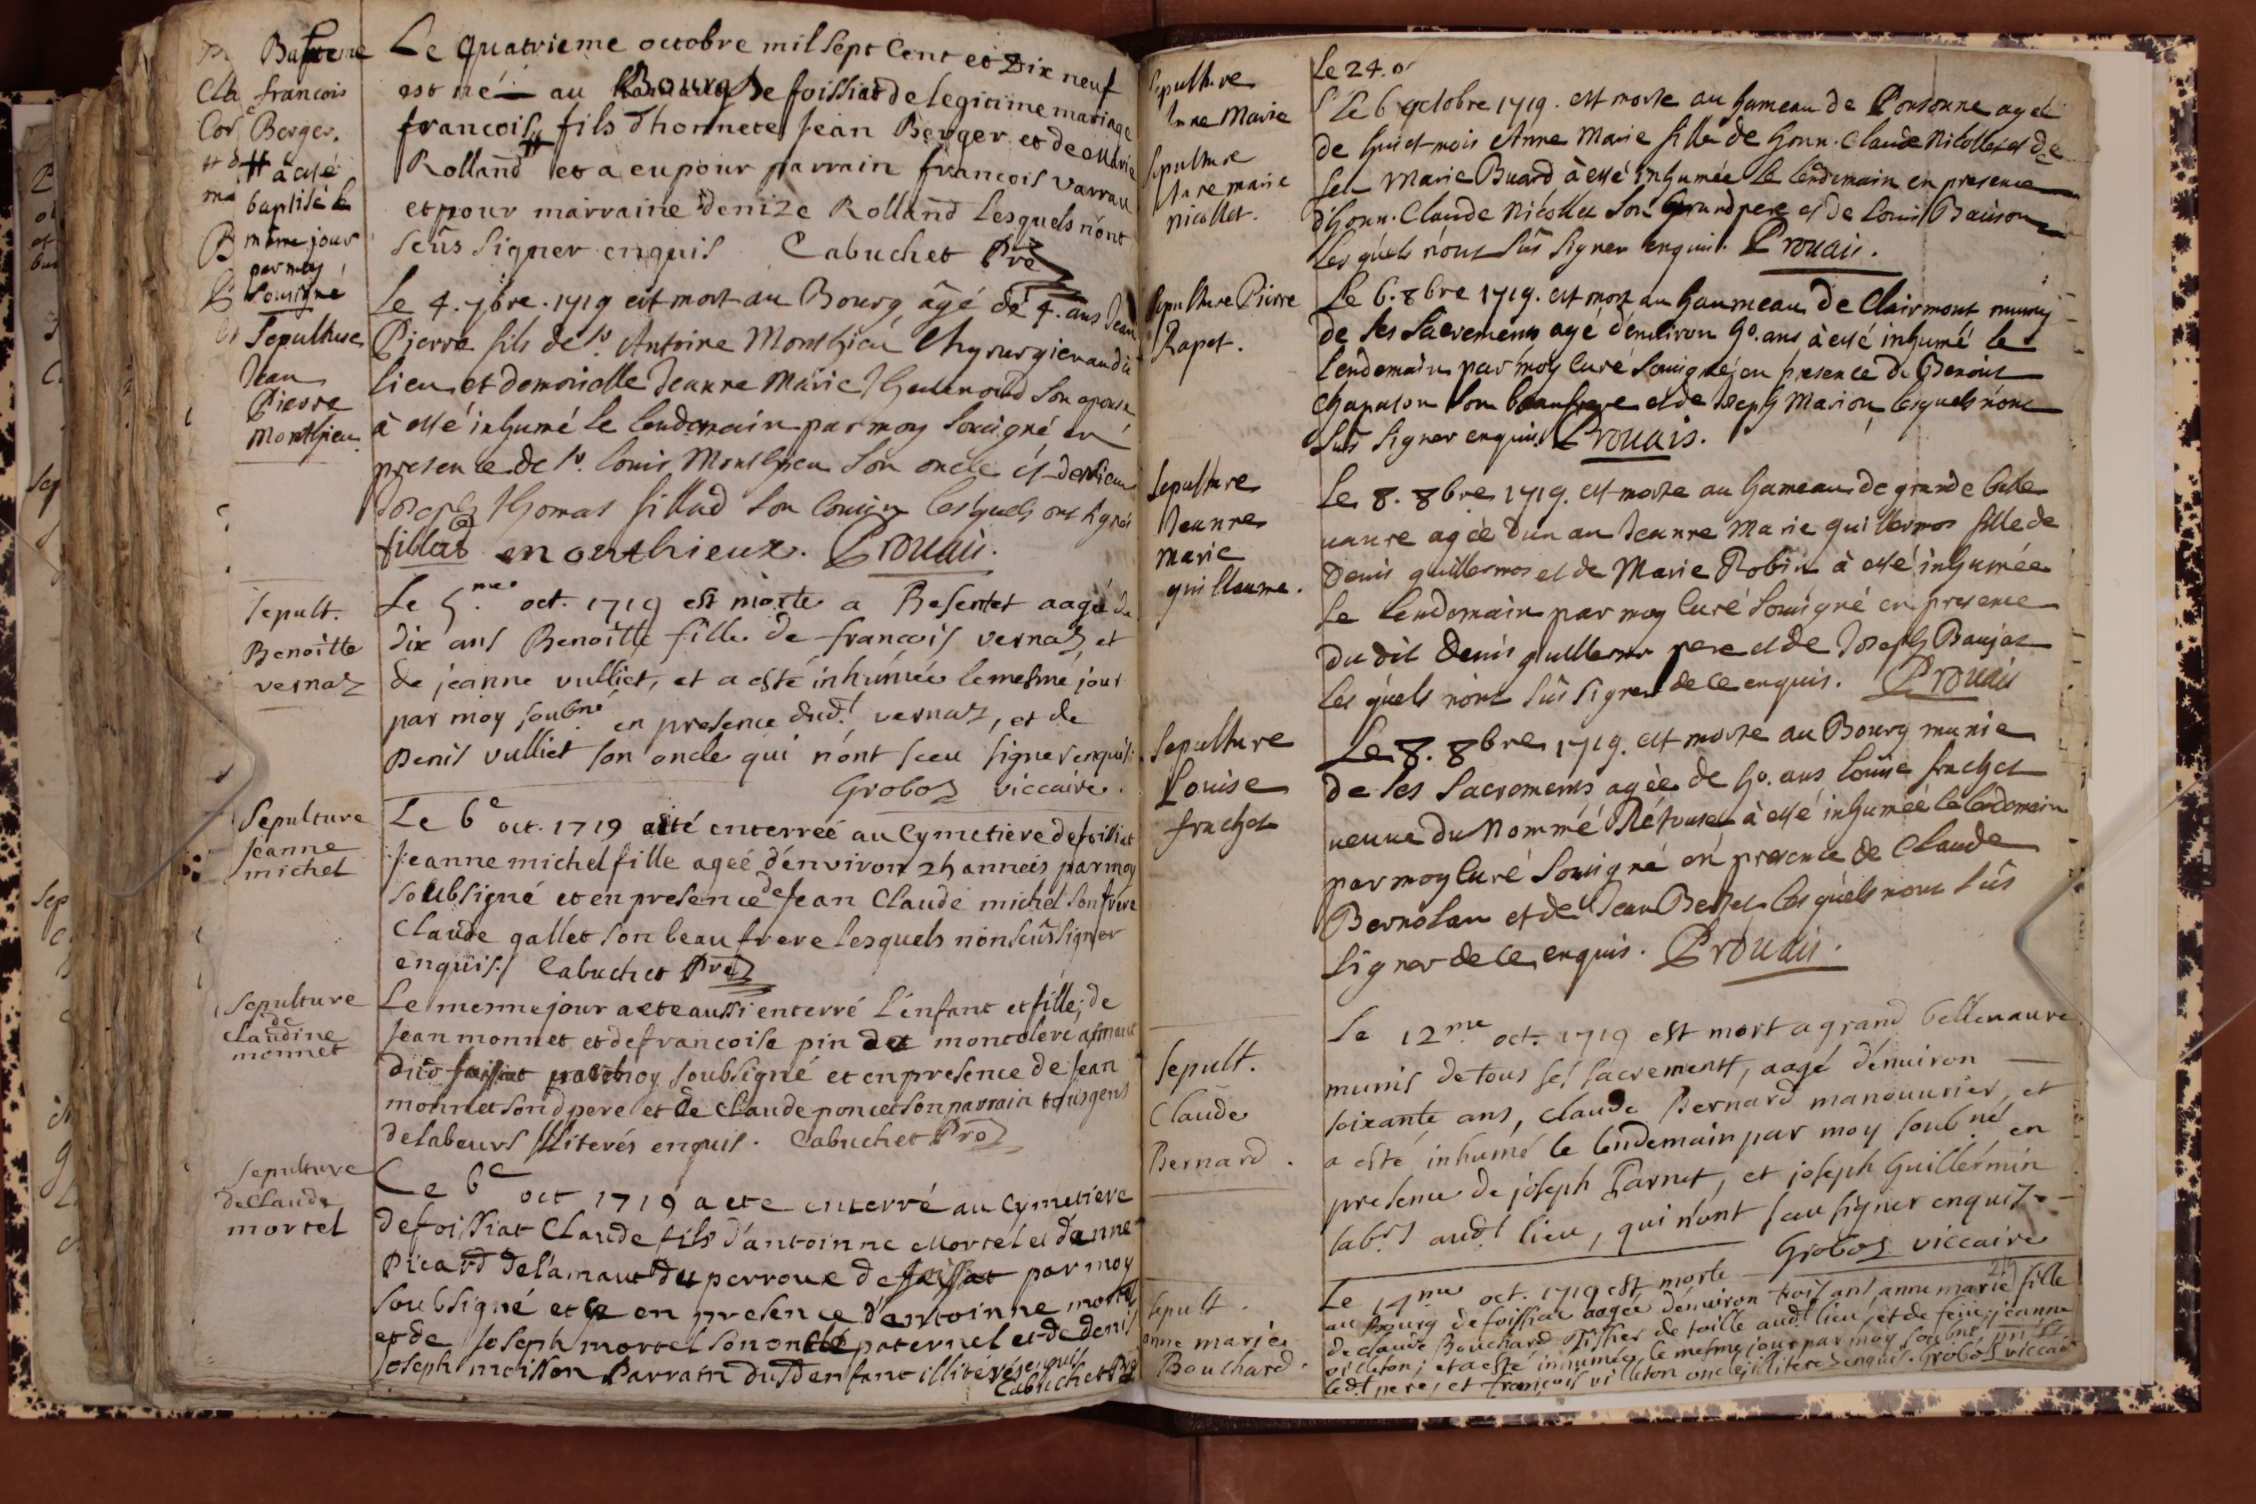 Bapteme
francois
Berger.
# à esté
baptisé le
même jour
par moy
sousigné
Le quatrieme octobre mil sept Cent et Dix neuf
est né au Bourg de foissiat de legitime mariage
francois # fils d'honnete Jean Berger et de Marie
Rolland et a eu pour parrain francois varrau
et pour marraine denize Rolland lesquels n'ont
sceus signer enquis Cabuchet Pre
Sepulture
Jean
Pierre
Monthieu
Le 4. 7bre. 1719 est mort au Bourg âgé de 4. ans Jean
Pierre fils de Sr. Antoine Monthieu Chyrurgien audit
lieu et demoiselle Jeanne Marie son epouse
à esté inhumé le lendemain par moy sousigné en
presence de Sr. Louis Monthieu son oncle et de
Joseph Thomas fillad son cousin lesquels ont signés
fillad monthieux. Prouais.
Sepult.
Benoitte
vernaz
Le 5.me oct. 1719 est morte a Besentet aagé de
dix ans Benoitte fille de francois vernaz, et
de jeanne vulliet, et a esté inhumée le mesme jour
par moy soubné en presence dudt. vernaz, et de
Denis vulliet son oncle qui n'ont sceu signer enquis
Groboz viccaire.
Sepulture
Jeanne
michel
Le 6e oct. 1719 a été enterreé au Cymetiere de foissiat
Jeanne michel fille ageé d'environ 25 anneés par moy
soubsigné et en presence de Jean Claude michel son frere
Claude gallet son beau frere lesquels n'on sceus signer
enquis./ Cabuchet Pre
Sepulture
de
Claudine
monnet
Le mesme jour a ete aussi enterré l'enfant et fille, de
Jean monnet et de francoise pin de montoleré
dud foissiat par moy soubsigné et en presence de Jean
monnet sond pere et de Claude poncet son parrain tous gens
de labeurs illiterés enquis. Cabuchet Pre
Sepulture
de Claude
mortel
Le 6e oct 1719 a ete enterré au Cymetiere
de foissiat Claude fils d'antoinne Mortel et d'anne
Picard de l'amaut du perroux de foissiat par moy
soubsigné et en presence d'antoinne mortel
et de Joseph mortel son oncle paternel et de denis
Joseph moisson Parrain dudt enfant illiterés enquis
Cabuchet Pre
Le 24.
Sepulture
Anne Marie
Sepulture
Anne marie
nicollet.
Le 6 octobre 1719. est morte au hameau de Ponsonne ageé
de huict mois Anne Marie fille de honn. Claude Nicollet et de
feu Marie Buard à esté inhumée le lendemain en presence
d'honn. Claude Nicollet son grand pere et de Louis Baison
Lesquels n'ont sus signer enquis. Prouais.
Sepulture Pierre
Rapet.
Le 6. 8bre 1719. est mort au haumeau de Clairmont muny
de ses sacremens agé d'environ 50. ans à esté inhumé le
lendemain par moy Curé sousigné en presence de Benoist
Chapuson son beaufrere et de Joseph Marion lesquels n'ont
sus signer enquis Prouais.
Sepulture
Jeanne
marie
guillaume.
Le 8. 8bre 1719. est morte au hameau de grande belle
vavre ageé d'un an Jeanne Marie guillermos fille de
Denis guillermos et de Marie Robin à esté inhumée
le lendemain par moy Curé sousigné en presence
du dit Denis guillermos pere et de Joseph Baujat
lesquels n'ont sûs signer de ce enquis. Prouais
Sepulture
Louise
frachet
Le 8. 8bre 1719. est morte au Bourg munie
de ses sacremens ageé de 50. ans Louise frachet
veuve du Nommé à esté inhumée le lendemain
par moy Curé sousigné en presence de Claude
Bernolan et de Jean lesquels n'ont sûs
signer de ce enquis. Prouais.
Sepult.
Claude
Bernard.
Le 12me oct. 1719 est mort a grand bellevavre
munis de tous ses sacrements, aagé d'environ
soixante ans, Claude Bernard manouvrier, et
a esté inhumé le lendemain par moy soubné en
presence de joseph Parnet, et joseph Guillermin
labrs audt lieu, qui n'ont sceu signer enquiz
Groboz viccaire
Sepult.
anne marie
Bouchard.
Le 14me oct. 1719 est morte
au Bourg de foissiat aageé d'environ trois ans anne marie fille
de claude Bouchard Tissier de toille audt lieu, et de feüe jeanne
villeton; et a esté inhumée le mesme jour par moy soubné
ledt pere, et francois villeton oncle illiterez enquis. Groboz viccaire